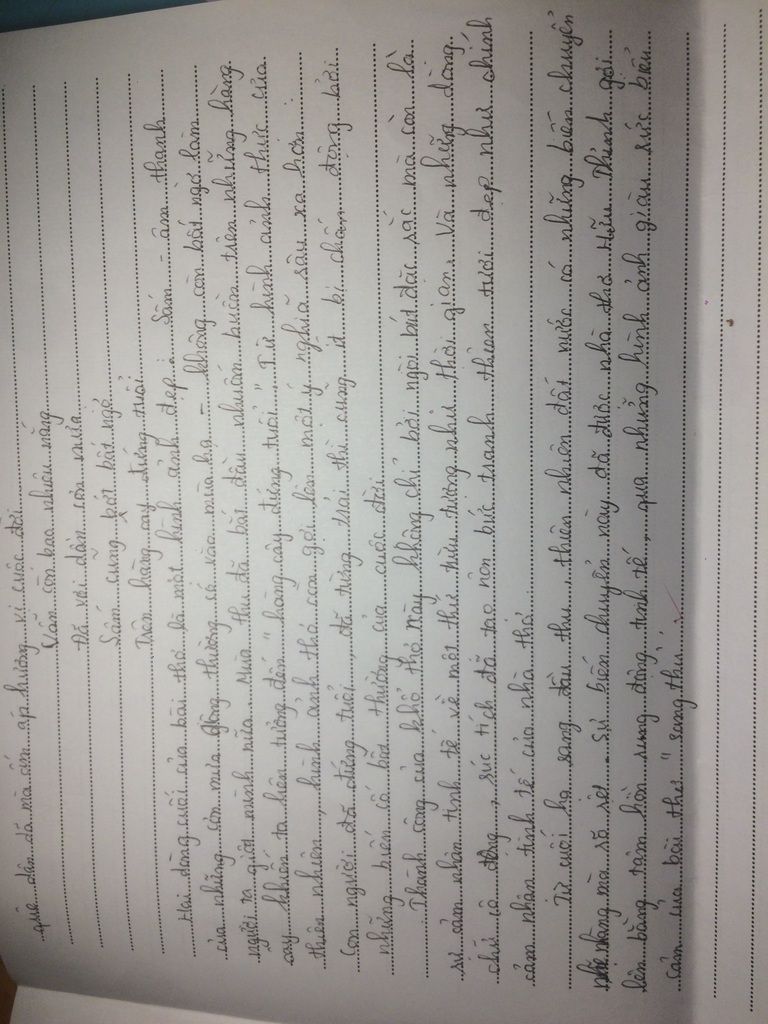 quê dân dã mà ấm áp hương vị cuộc đời
Vẫn còn bao nhiêu nắng
Đã vơi dần cơn mưa
Sấm cũng bớt bất ngờ
Trên hàng cây đứng tuổi
Hai dòng cuối của bài thơ là một hình ảnh đẹp. Sấm - âm thanh
của những cơn mưa giông thường có vào mùa hạ - không còn bất ngờ làm
người ta giật mình nữa. Mùa thu đã bắt đầu nhuốm buồn trên những hàng
cây khiến ta liên tưởng đến "hàng cây đứng tuổi". Từ hình ảnh thực của
thiên nhiên, hình ảnh thơ còn gợi lên một ý nghĩa sâu xa hơn:
Con người đã đứng tuổi, đã từng trải thì cũng ít bị chấn động bởi
những biến cố bất thường của cuộc đời
Thành công của khổ thơ này không chỉ bởi ngòi bút đặc sắc mà còn là
sự cảm nhận tinh tế về một thứ trừu tượng như thời gian. Và những dòng
chữ cô đọng, súc tích đã tạo nên bức tranh thiên tươi đẹp như chính
cảm nhận tinh tế của nhà thơ
Từ cuối hạ sang đầu thu, thiên nhiên đất nước có những biến chuyển
nhẹ nhàng mà rõ rệt. Sự biến chuyển này đã được nhà thơ Hữu Thỉnh gợi
lên bằng tâm hồn rung động tinh tế, qua những hình ảnh giàu sức biểu
cảm của bài thơ "Sang thu".